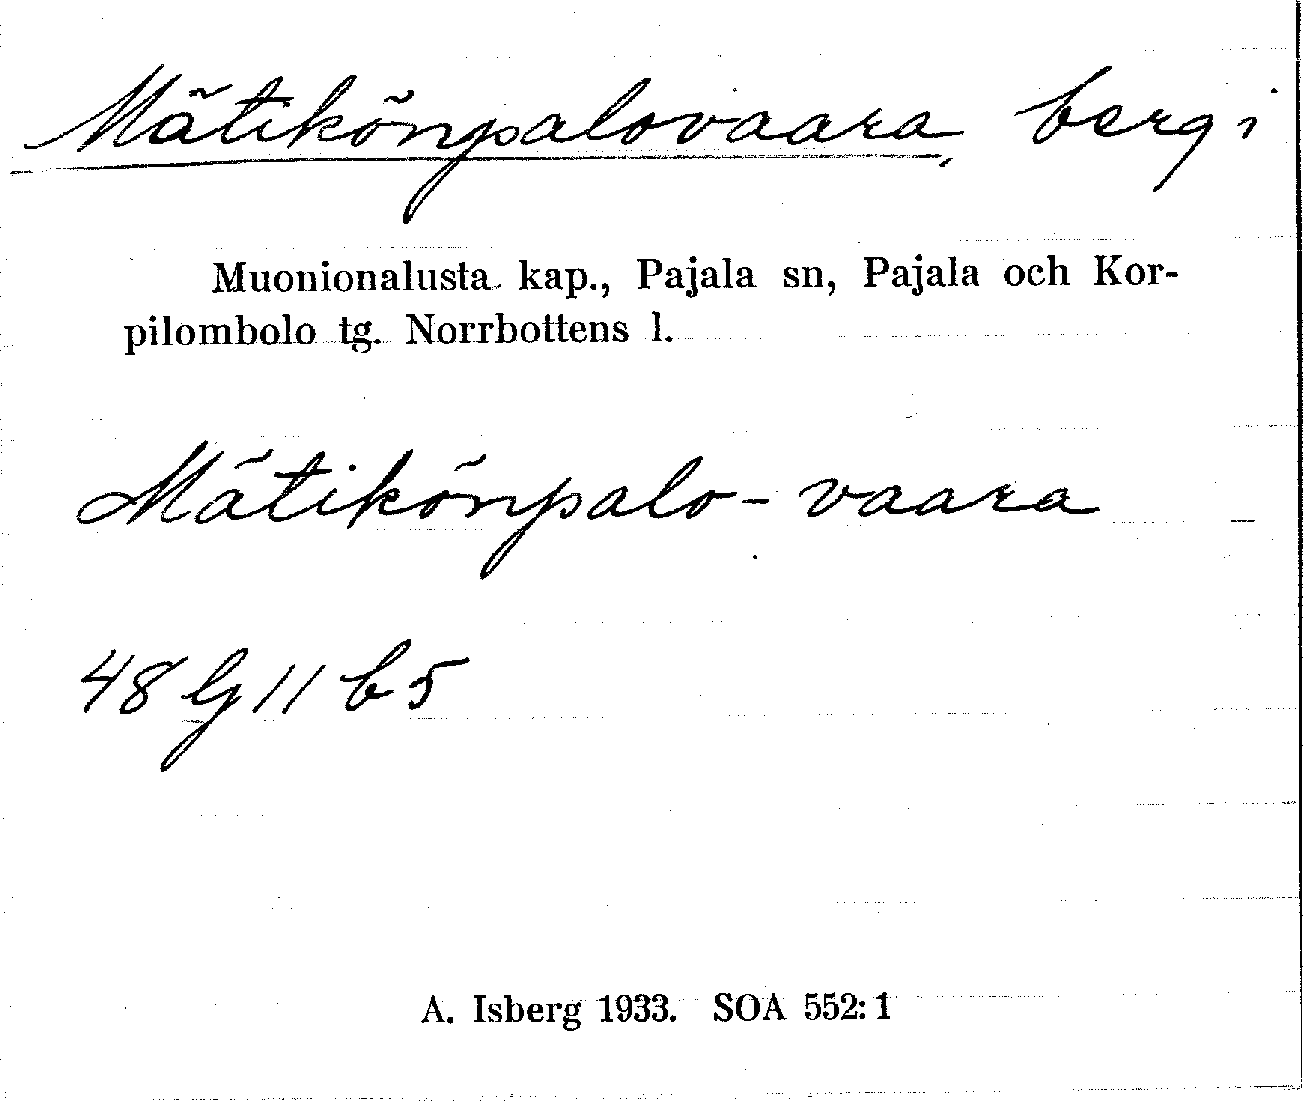 Mätikönpalovaara, berg i
Muonionalusta kap., Pajala sn, Pajala och Kor-
pilombolo tg. Norrbottens l.
Mätikönpalo-vaara
48 Ej 11 b 5
A. Isberg 1933. SOA 552:1